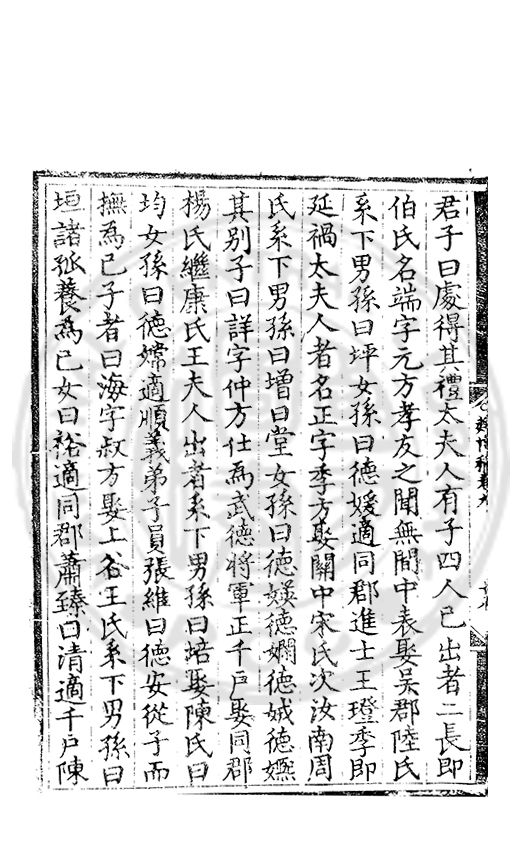 君子曰處得其禮太夫人有子四人己出者二長即
伯氏名端字元方孝友之聞無間中表娶吳郡陸氏
系下男孫曰坪女孫曰德媛適同郡進士王璒季即
延禍太夫人者名正字季方娶關中宋氏次汝南周
氏系下男孫曰增曰堂女孫曰德媖德嫻德娀德嬿
其別子曰詳字仲方仕為武德將軍正千戶娶同郡
楊氏繼康氏王夫人出者系下男孫曰培娶陳氏曰
均女孫曰德嫦適順義弟子員張維曰德安從子而
撫為己子者曰海字叔方娶上谷王氏系下男孫曰
垣諸孤養為己女曰裕適同郡蕭臻曰清適千戶陳